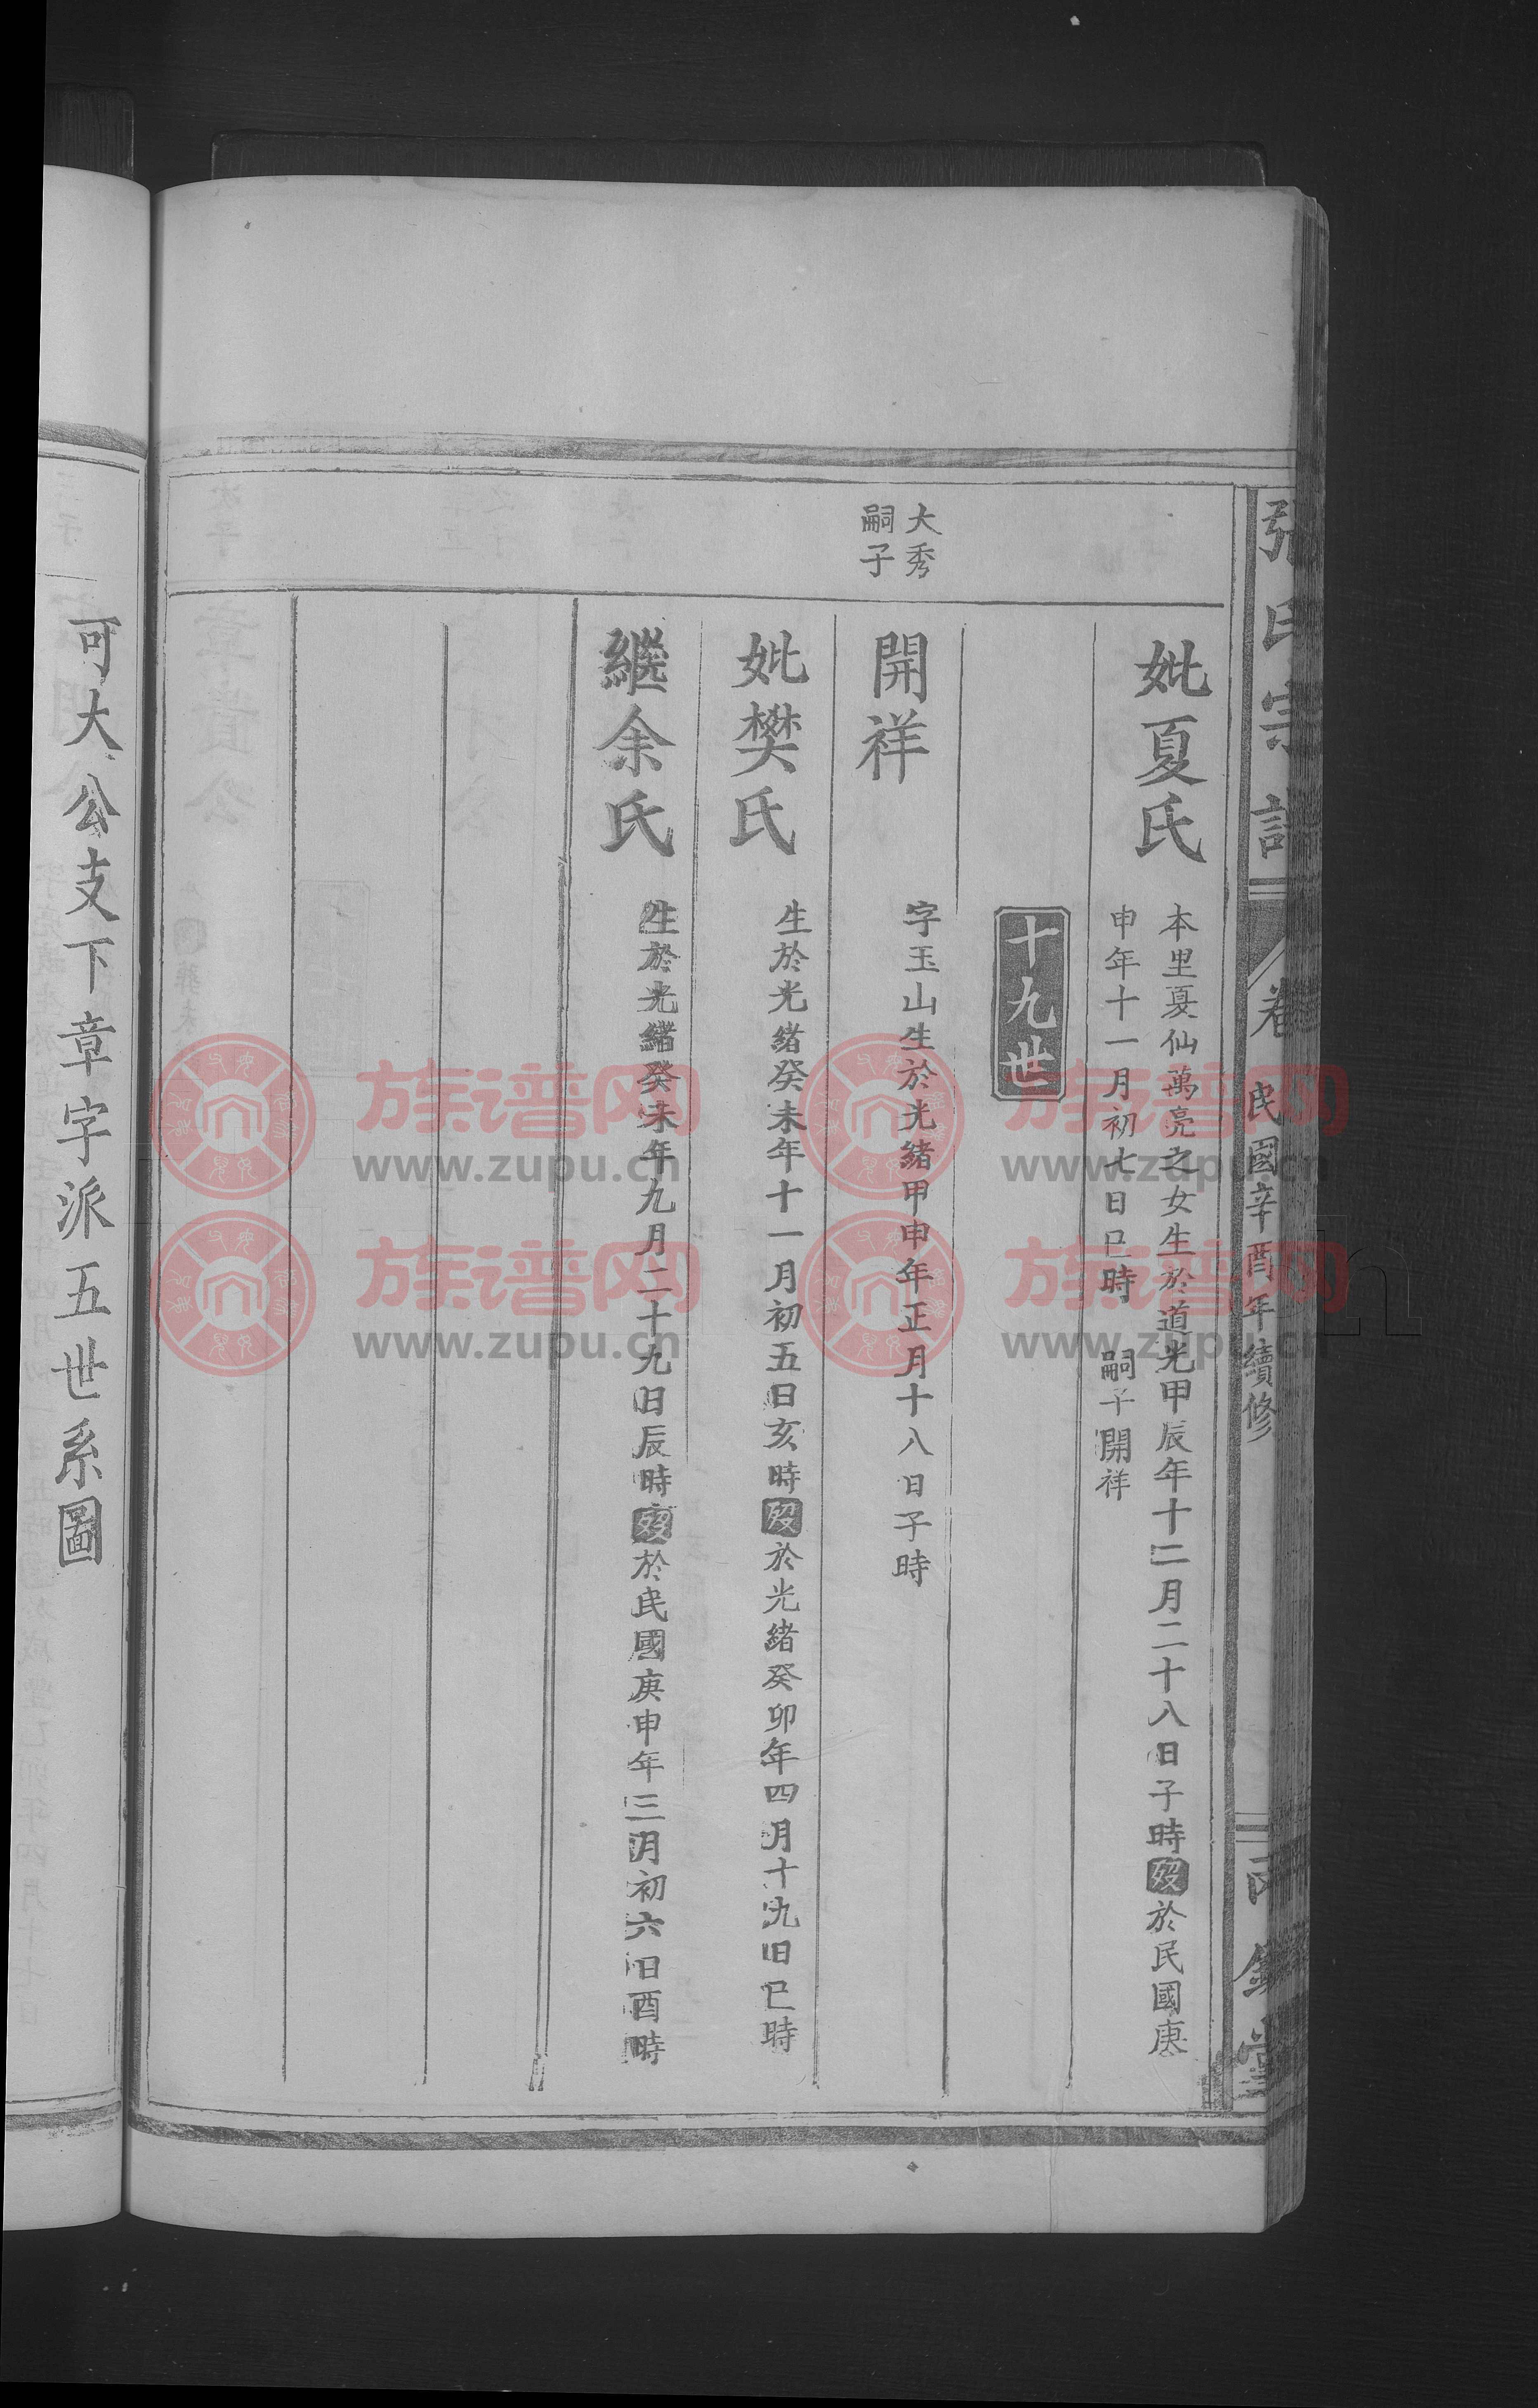 張氏宗譜
卷
民國辛酉年續修
妣夏氏
本里夏仙萬亮之女生於道光甲辰年十二月二十八日子時歿於民國庚
申年十一月初七日巳時 嗣子開祥
十九世
大秀
嗣子
開祥
字玉山生於光緒甲申年正月十八日子時
妣樊氏
生於光緒癸未年十一月初五日亥時歿於光緒癸卯年四月十九日巳時
繼余氏
生於光緒癸未年九月二十九日辰時歿於民國庚申年三月初六日酉時
可大公支下章字派五世系圖
族谱网
www.zupu.cn
族谱网
www.zupu.cn
族谱网
www.zupu.cn
族谱网
www.zupu.cn